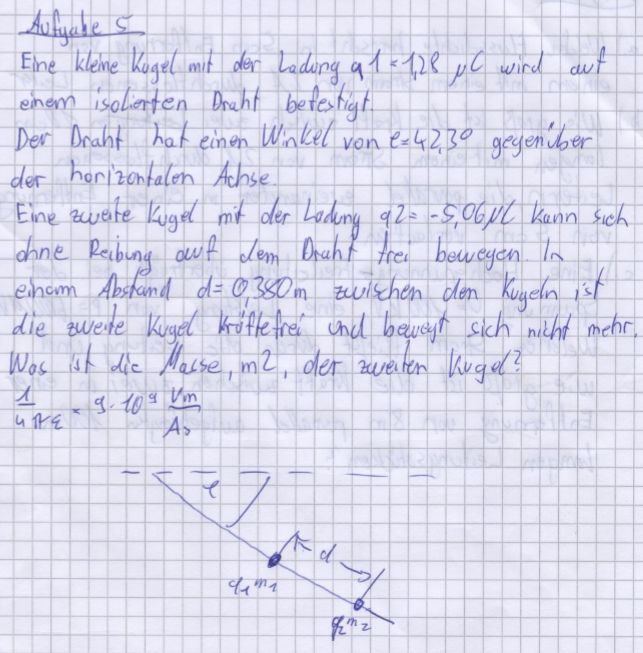 Aufgabe 5
Eine kleine Kugel mit der Ladung q1=1,28 µC wird auf
einem isolierten Draht befestigt.
Der Draht hat einen Winkel von φ=42,3° gegenüber
der horizontalen Achse.
Eine zweite Kugel mit der Ladung q2=-5,06µC kann sich
ohne Reibung auf dem Draht frei bewegen. In
einem Abstand d=0,380m zwischen den Kugeln ist
die zweite Kugel kräftefrei und bewegt sich nicht mehr.
Was ist die Masse, m2, der zweiten Kugel?
1/4πε = 9·10⁹ Vm/As
φ
d
q₁ m₁
q₂ m₂